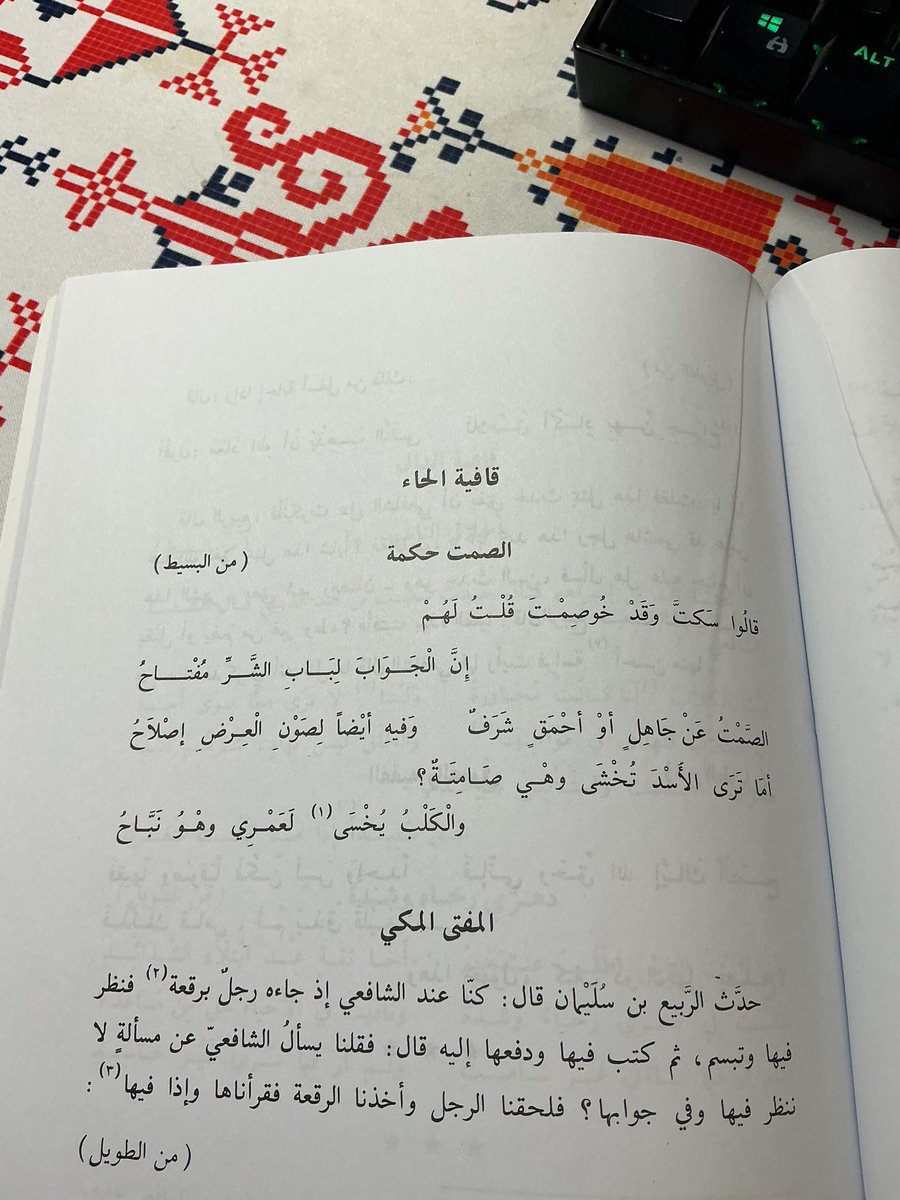 ALT
قافية الحاء
الصمت حكمة
(من البسيط)
قالُوا سَكتَّ وَقَدْ خُوصِمْتَ قُلْتُ لَهُمْ
إِنَّ الْجَوَابَ لِبَابِ الشَّرِّ مُفْتَاحُ
الصَّمْتُ عَنْ جَاهِلٍ أوْ أحْمَقٍ شَرَفٌ وَفيهِ أيْضاً لِصَوْنِ الْعِرْضِ إصْلاَحُ
أمَا تَرَى الأَسْدَ تُخْشَى وهْي صَامِتَةٌ؟
والْكَلْبُ يُخْسَى(١) لَعَمْرِي وهْوُ نَبَّاحُ
المفتى المكي
حدَّث الرَّبيع بن سُلَيْمان قال: كنّا عند الشافعي إذ جاءه رجلٌ برقعة(٢) فنظر
فيها وتبسم، ثم كتب فيها ودفعها إليه قال: فقلنا يسألُ الشافعيّ عن مسألةٍ لا
ننظر فيها وفي جوابها؟ فلحقنا الرجل وأخذنا الرقعة فقرأناها وإذا فيها(٣):
(من الطويل)